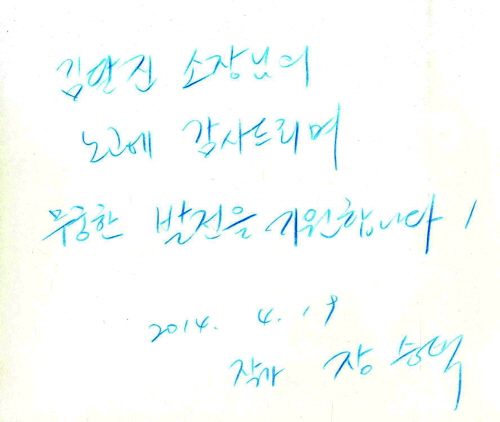 김안진 소장님의
노고에 감사드리며
무궁한 발전을 기원합니다!
2014. 4. 19
작가 장승택